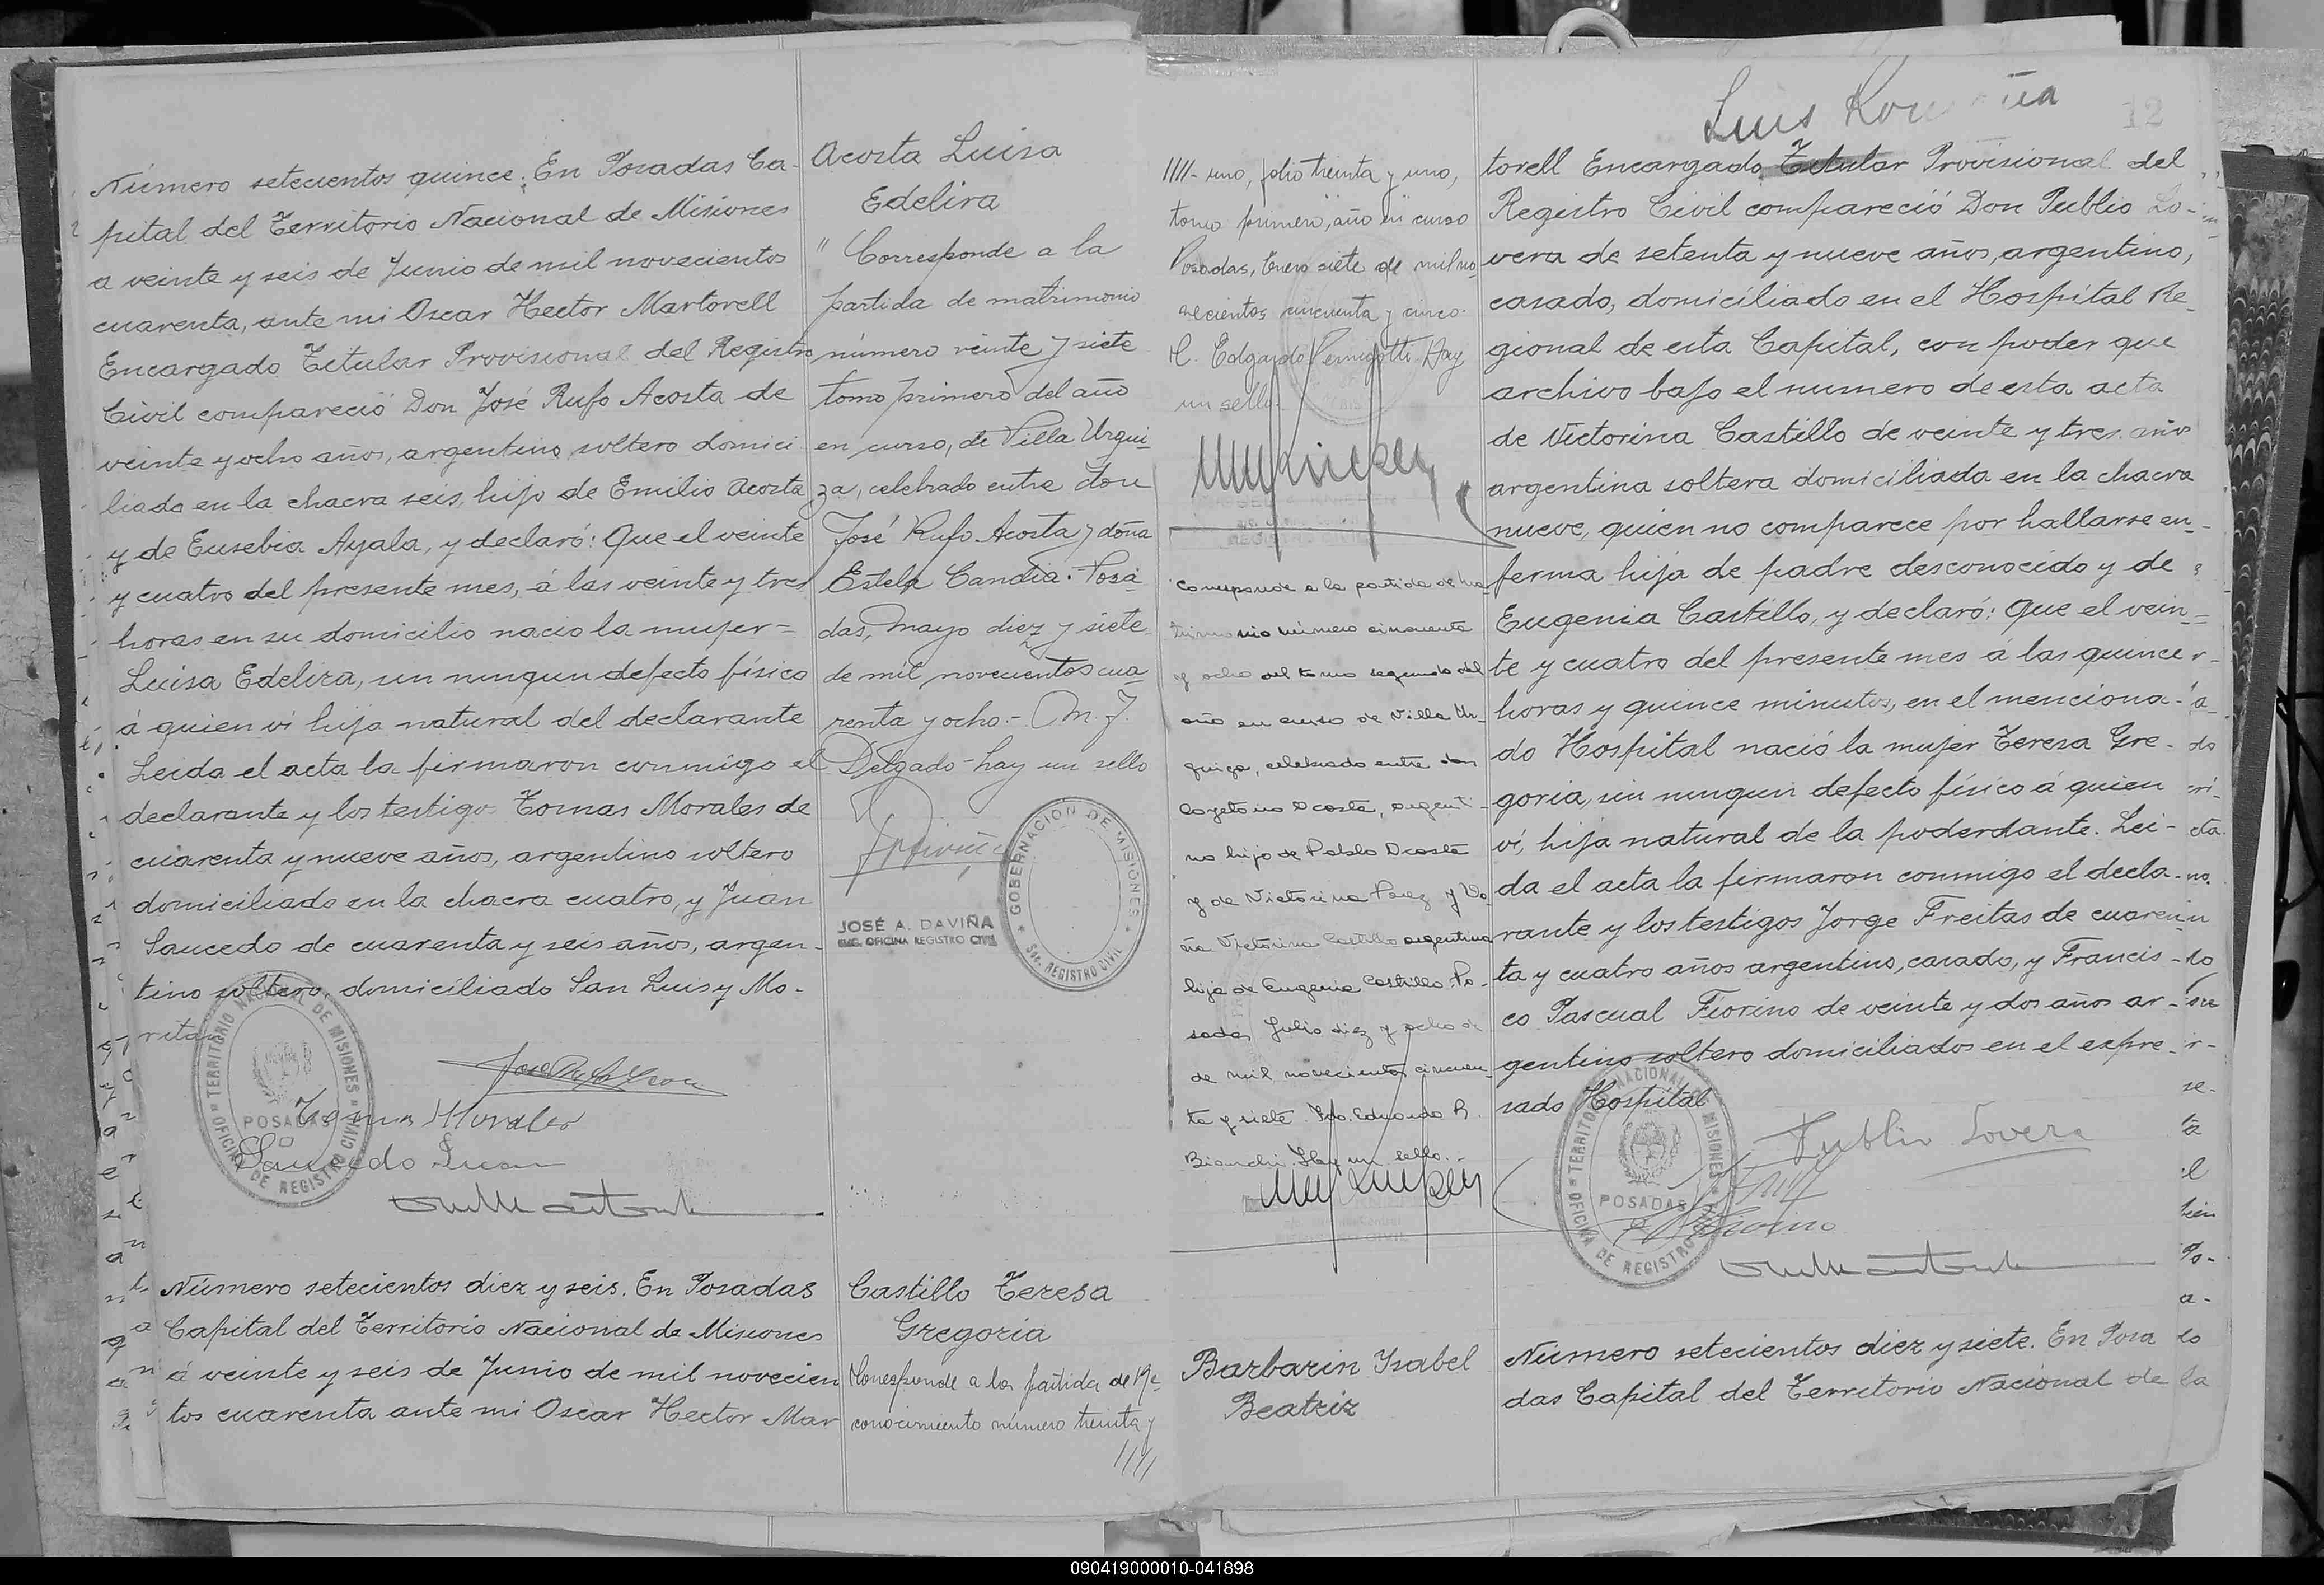 Número setecientos quince. En Posadas Ca-
pital del Territorio Nacional de Misiones
a veinte y seis de Junio de mil novecientos
cuarenta, ante mi Oscar Hector Martorell
Encargado Titular Provisional del Registro
Civil compareció Don José Rufo Acosta de
veinte y ocho años, argentino, soltero domici-
liado en la chacra seis, hijo de Emilio Acosta
y de Eusebia Ayala, y declaró: Que el veinte
y cuatro del presente mes, á las veinte y tres
horas en su domicilio nacio la mujer=
Luisa Edelira, sin ningun defecto físico
á quien ví hija natural del declarante
Leida el acta la firmaron conmigo el
declarante y los testigo Tomas Morales de
cuarenta y nueve años, argentino soltero
domiciliado en la chacra cuatro, y Juan
Saucedo de cuarenta y seis años, argen-
tino soltero, domiciliado San Luis y Mo-
ritan
TERRITORIO NACIONAL DE MISIONES
POSADAS
OFICINA DE REGISTRO CIVIL
Tomas Morales
Saucedo Juan
Acosta Luisa
Edelira
" Corresponde a la
partida de matrimonio
número veinte y siete
tomo primero del año
en curso, de Villa Urqui-
za, celebrado entre don
José Rufo Acosta y doña
Estela Candia. Posa-
das, mayo diez y siete
de mil novecientos cua-
renta y ocho.- M. J.
Delgado - hay un sello
GOBERNACION DE MISIONES
Sec. REGISTRO CIVIL
JOSÉ A. DAVIÑA
ENC. OFICINA REGISTRO CIVIL
Número setecientos diez y seis. En Posadas
Capital del Territorio Nacional de Misiones
á veinte y seis de Junio de mil novecien
tos cuarenta ante mi Oscar Hector Mar
Castillo Teresa
Gregoria
Corresponde a la partida de Re-
conocimiento número treinta y
////
////- uno, folio treinta y uno,
tomo primero, año en curso
Posadas, Enero siete de mil no-
vecientos cincuenta y cinco.
Edgardo Hay
un sello.
Corresponde a la partida de ma-
trimonio número cincuenta
y ocho del tomo segundo del
año en curso de Villa Ur-
quiza, celebrado entre don
Cayetano Acosta, argenti-
no hijo de Pablo Acosta
y de Victorina Perez y Do-
ña Victorina Castillo argentina
hija de Eugenia Castillo. Po-
sadas Julio diez y ocho de
de mil novecientos cincuen-
ta y siete. Fdo. Eduardo R.
Bianchi. Hay un sello.-
Barbarin Ysabel
Beatriz
Luis
12
torell Encargado Titular Provisional del
Registro Civil compareció Don Publio Lo-
vera de setenta y nueve años, argentino,
casado, domiciliado en el Hospital Re-
gional de esta Capital, con poder que
archivo bajo el numero de esta acta
de Victorina Castillo de veinte y tres años
argentina soltera domiciliada en la chacra
nueve, quien no comparece por hallarse en-
ferma hija de padre desconocido y de
Eugenia Castillo, y declaró: Que el vein-
te y cuatro del presente mes á las quince
horas y quince minutos, en el menciona-
do Hospital nació la mujer Teresa Gre-
goria, sin ningun defecto físico á quien
ví, hija natural de la poderdante. Lei-
da el acta la firmaron conmigo el decla-
rante y los testigos Jorge Freitas de cuaren
ta y cuatro años argentino, casado, y Francis-
co Pascual Fiorino de veinte y dos años ar-
gentino soltero domiciliados en el expre-
sado Hospital
TERRITORIO NACIONAL DE MISIONES
POSADAS
OFICINA DE REGISTRO CIVIL
Publio Lovera
Número setecientos diez y siete. En Posa
das Capital del Territorio Nacional de
090419000010-041898